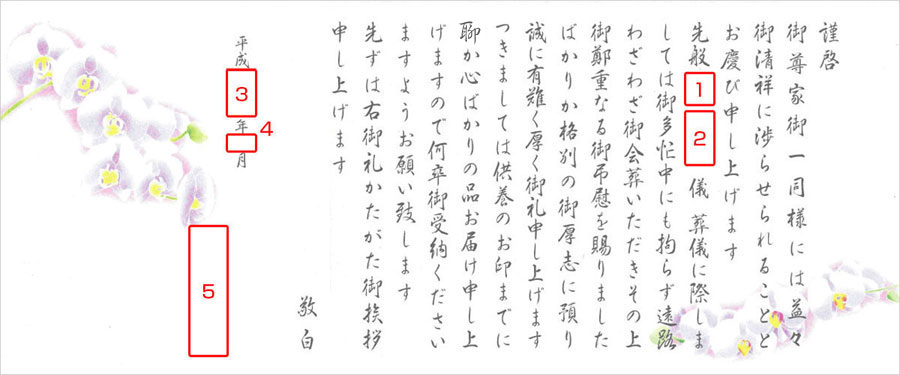 謹啓
御尊家御一同様には益々
御清祥に渉らせられることと
お慶び申し上げます
先般 1 2 儀 葬儀に際しま
しては御多忙中にも拘らず遠路
わざわざ御会葬いただきその上
御鄭重なる御弔慰を賜りました
ばかりか格別の御厚志に預り
誠に有難く厚く御礼申し上げます
つきましては供養のお印までに
聊か心ばかりの品お届け申し上
げますので何卒御受納ください
ますようお願い致します
先ずは右御礼かたがた御挨拶
申し上げます
敬白
平成 3 年 4 月
5